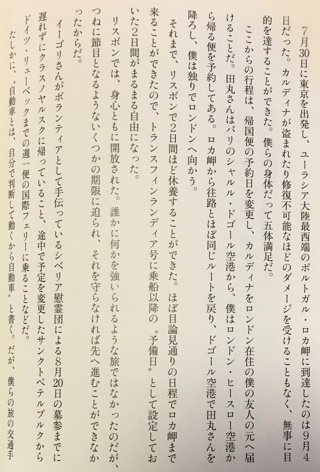 7月30日に東京を出発し、ユーラシア大陸最西端のポルトガル・ロカ岬に到達したのは9月4
日だった。カルディナが盗まれたり修復不可能なほどのダメージを受けることもなく、無事に目
的を達することができた。僕らの身体だって五体満足だ。
ここからの行程は、帰国便の予約日を変更し、カルディナをロンドン在住の僕の友人の元へ届
けることだ。田丸さんはパリのシャルル・ドゴール空港から、僕はロンドン・ヒースロー空港か
ら帰る便を予約してある。ロカ岬から往路とほぼ同じルートを戻り、ドゴール空港で田丸さんを
降ろし、僕は独りでロンドンへ向かう。
それまで、リスボンで2日間ほど休養することができた。ほぼ目論見通りの日程でロカ岬まで
来ることができたので、トランスフィンランディア号に乗船以降の〝予備日〟として設定してお
いた2日間がまるまる自由になった。
リスボンでは、身心ともに開放された。誰かに何かを強いられるような旅ではなかったのだが、
つねに節目となるようないくつかの期限に迫られ、それを守らなければ先へ進むことができなか
ったからだ。
イーゴリさんがボランティアとして手伝っているシベリア慰霊団による8月20日の墓参までに
遅れずにクラスノヤルスクに帰っていること、途中で予定を変更したサンクトペテルブルクから
ドイツ・リューベックまでの週一便の国際フェリーに乗ることなどだ。
たしかに、〝自動車とは、自分で判断して動くから自動車〟と書く。だが、僕らの旅の交通手